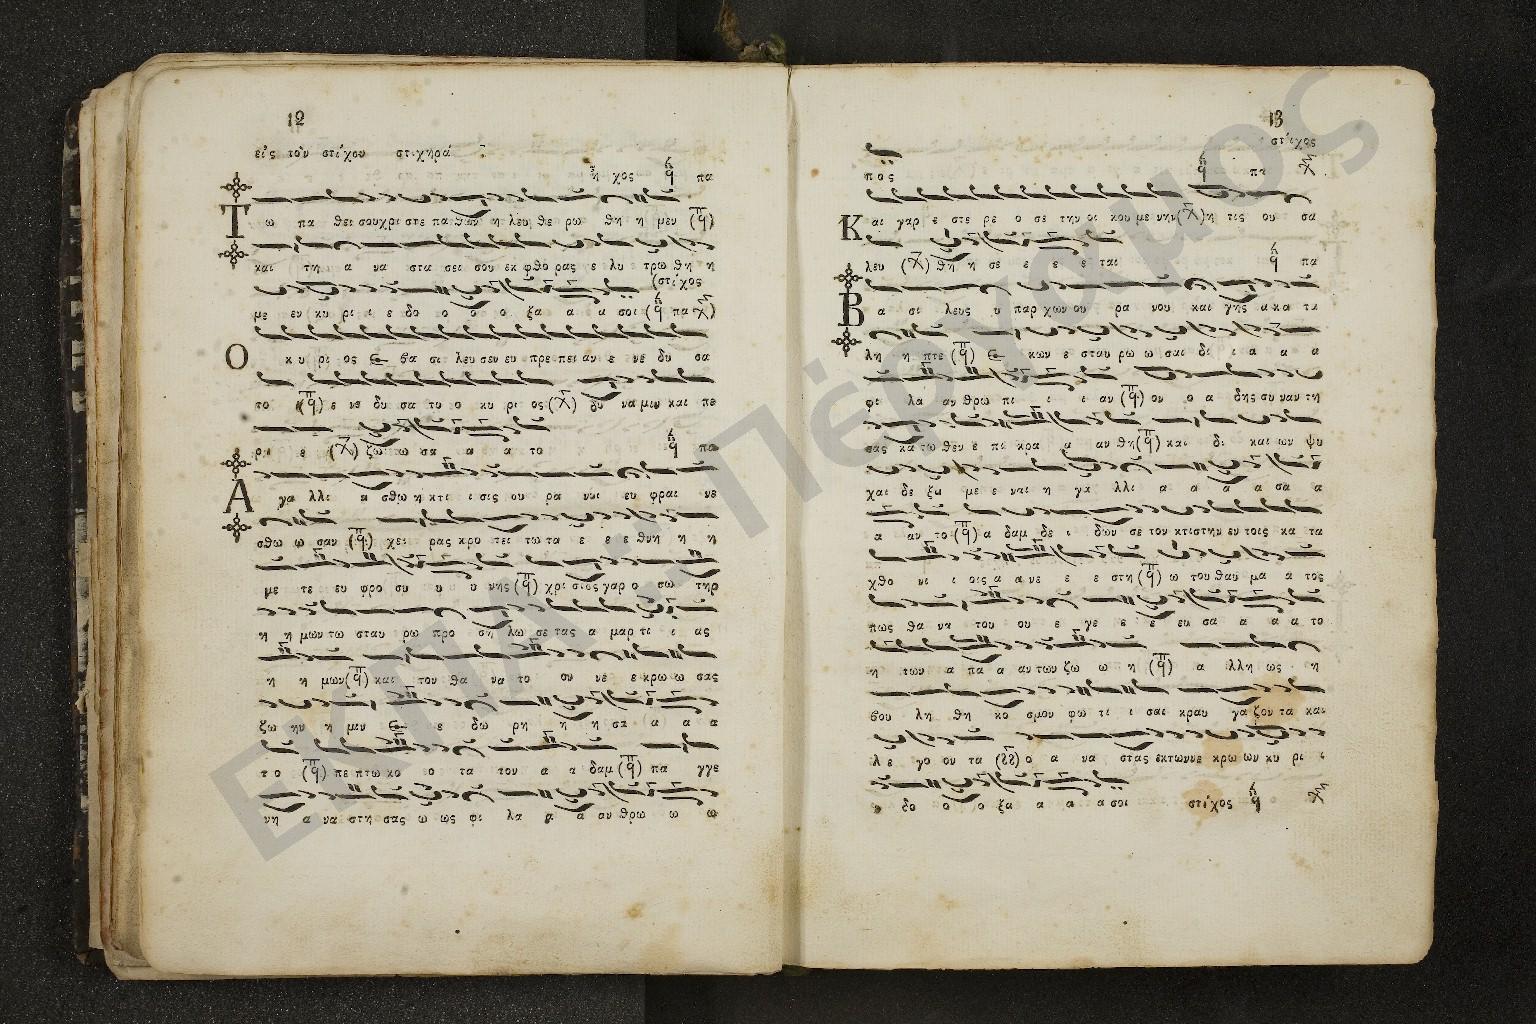 12
εἰς τὸν στίχον στιχηρά
ἦχος πα
Τω πα θει σου χρι στε πα θων η λευ θε ρω θη η μεν
και τη α να στα σει σου εκ φθο ρας ε λυ τρω θη η
(στίχος
με εν κυ ρι ι ε δο ο ο ο ξα α α σοι ( πα )
Ο κυ ρι ος ε βα σι λευ σεν ευ πρε πει αν ε νε δυ σα
το ε νε δυ σα το ο κυ ρι ος δυ να μιν και πε
ρι ε ζω σα α α το πα
Α γα λλι α σθω η κτι ι σις ου ρα νοι ευ φραι νε
σθω ω σαν χει ρας κρο τει τω τα ε ε ε θνη η η
με τε ευ φρο συ υ υ νης χρι στος γαρ ο σω τηρ
η η μων τω σταυ ρω προ ση λω σε τας α μαρ τι ι ας
η η μων και τον θα να το ον νε ε κρω ω σας
ζω ην η μιν ε δω ρη η η σα α α α
το πε πτω κο ο τα τον α α δαμ πα γγε
νη α να στη σας ω ως φι λα α α αν θρω ω ω
13
στίχος
πος πα
Και γαρ ε στε ρε ο σε την οι κου με νην η τις ου σα
λευ θη η σε ε ε ε ται πα
Βα σι λευς υ παρ χων ου ρα νου και γης α κα τα
λη η πτε ε κων ε σταυ ρω ω σαι δι ι α α α
φι λα αν θρω πι ι ι αν ον ο α δης συ ναν τη
σας κα τω θεν ε πι κρα α αν θη και δι και ων ψυ
χαι δε ξα με ε ναι η γα λλι α α α α σα α
α αν το α δαμ δε ι δων σε τον κτι στην εν τοις κα τα
χθο νι ι οις α α νε ε ε στη ω του θαυ μα α τος
πως θα να του ου ε γε ε ε ευ σα α α α το
η των α πα α αν των ζω ω η α λλη ως η
βου λη θη κο σμον φω τι ι σαι κραυ γα ζον τα και
λε γο ον τα ο α να στας εκ των νε κρω ων κυ ρι ι
ε δο ο ο ξα α α α σοι στίχος